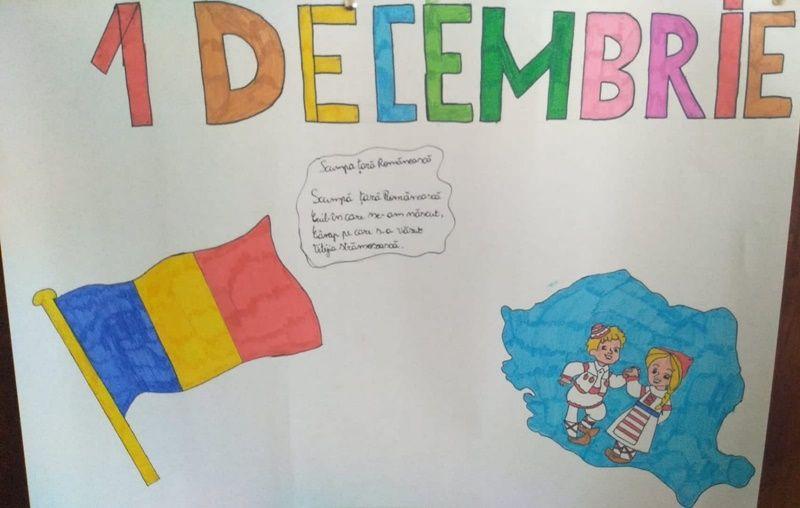 1 DECEMBRIE
Scumpa țară Românească
Scumpă țară Românească
Cuib în care ne-am născut,
Câmp pe care s-a văzut
Vitejia strămosească.